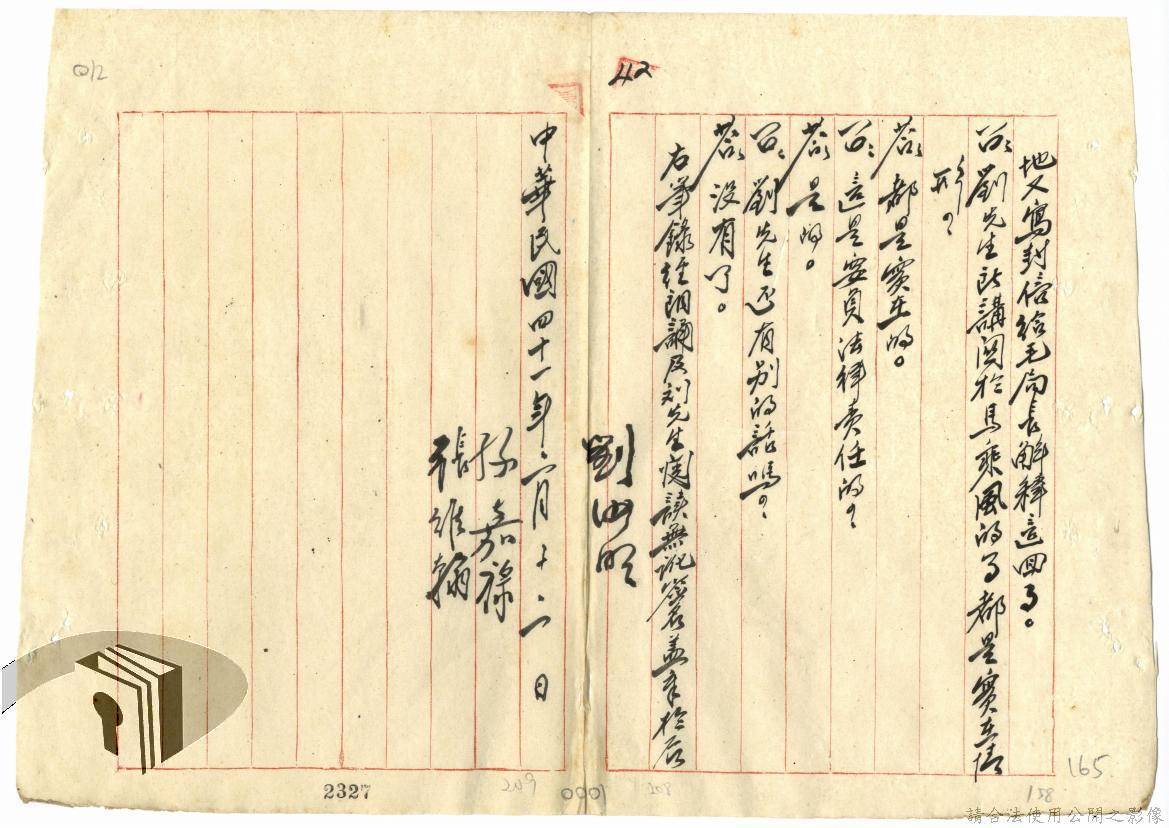 42
地又寫封信給毛局長解釋這回事。
問：劉先生所講關於馬乘風的事都是實在情
形？
答：都是實在的。
問：這是要負法律責任的？
答：是的。
問：劉先生还有别的話嗎？
答：没有了。
右筆錄経朗誦及刘先生閱讀無訛簽名盖章於后
劉
中華民國四十一年 月十 日
孫嘉祿
張維翰
012
2327
209
0001
208
165
158
請合法使用公開之影像